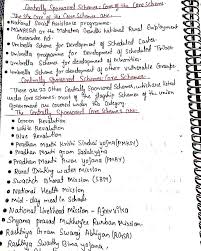 Centrally Sponsored Schemes: Core of the Core Scheme:-
The Core of the Core Schemes are:-
National Social Assistance programme
MGNREGA or the Mahatma Gandhi National Rural Employment
Guarantee Act
Umbrella Scheme for Development of Scheduled Castes
Umbrella programme for Development of Scheduled Tribes
Umbrella Scheme for development of Minorities
Umbrella Scheme for development of other vulnerable Groups.
Centrally Sponsored Schemes: Core Schemes:-
There are 23 other Centrally Sponsored Schemes, which are listed
under Core Schemes. most of the flagship Schemes of the union
Government are covered under this Category.
The Centrally Sponsored Core Schemes are:-
Green Revolution
White Revolution
Blue Revolution
Pradhan Mantri Krishi Sinchai Yojana (PMKSY)
Pradhan Mantri Gram Sadak Yojna
Pradhan Mantri Awas Yojana (PMAY)
Rural Drinking water Mission
Swachh Bharat Mission (SBM)
National Health Mission
Mid-day meal in Schools
National Livelihood Mission - Ajeevika
Shyama Prasad Mukherjee Rurban Mission
Rashtriya Gram Swaraj Abhiyan (RGSA)
Rashtriya Swasthya Bima Yojana